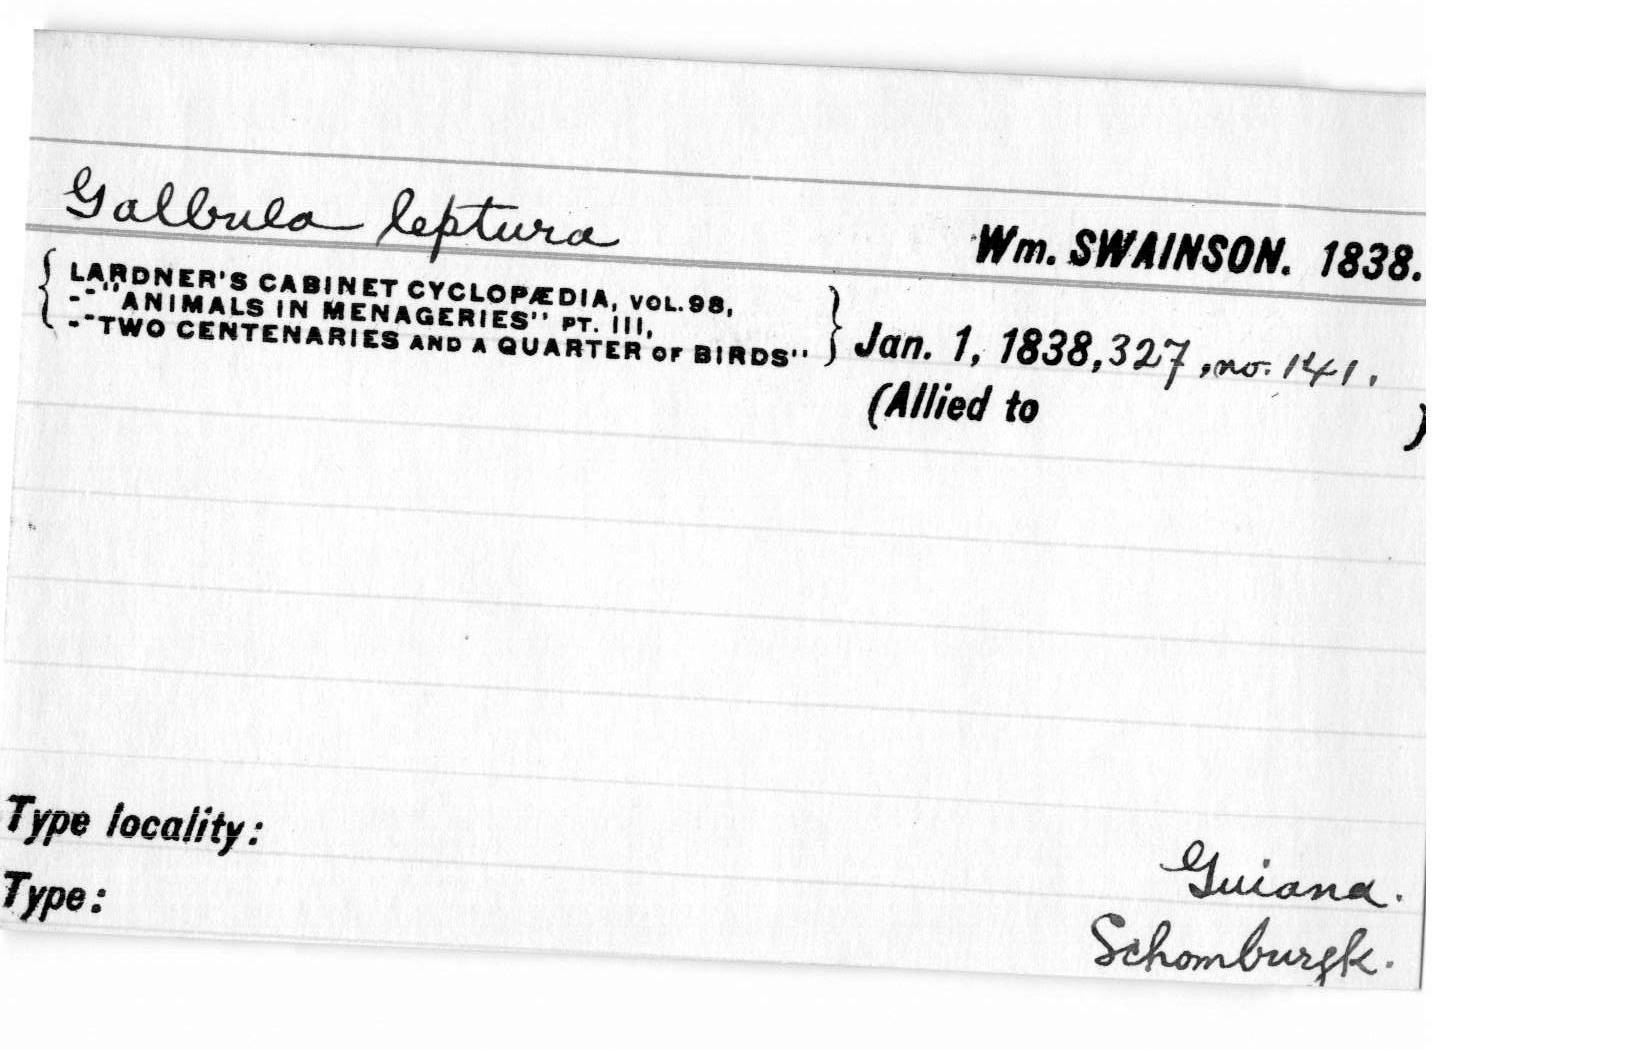 Galbula leptura
Wm. SWAINSON. 1838.
{ LARDNER'S CABINET CYCLOPÆDIA, VOL. 98,
--"ANIMALS IN MENAGERIES" PT. III,
--"TWO CENTENARIES AND A QUARTER OF BIRDS" } Jan. 1, 1838, 327, no. 141.
(Allied to )
Type locality: Guiana.
Type: Schomburgk.